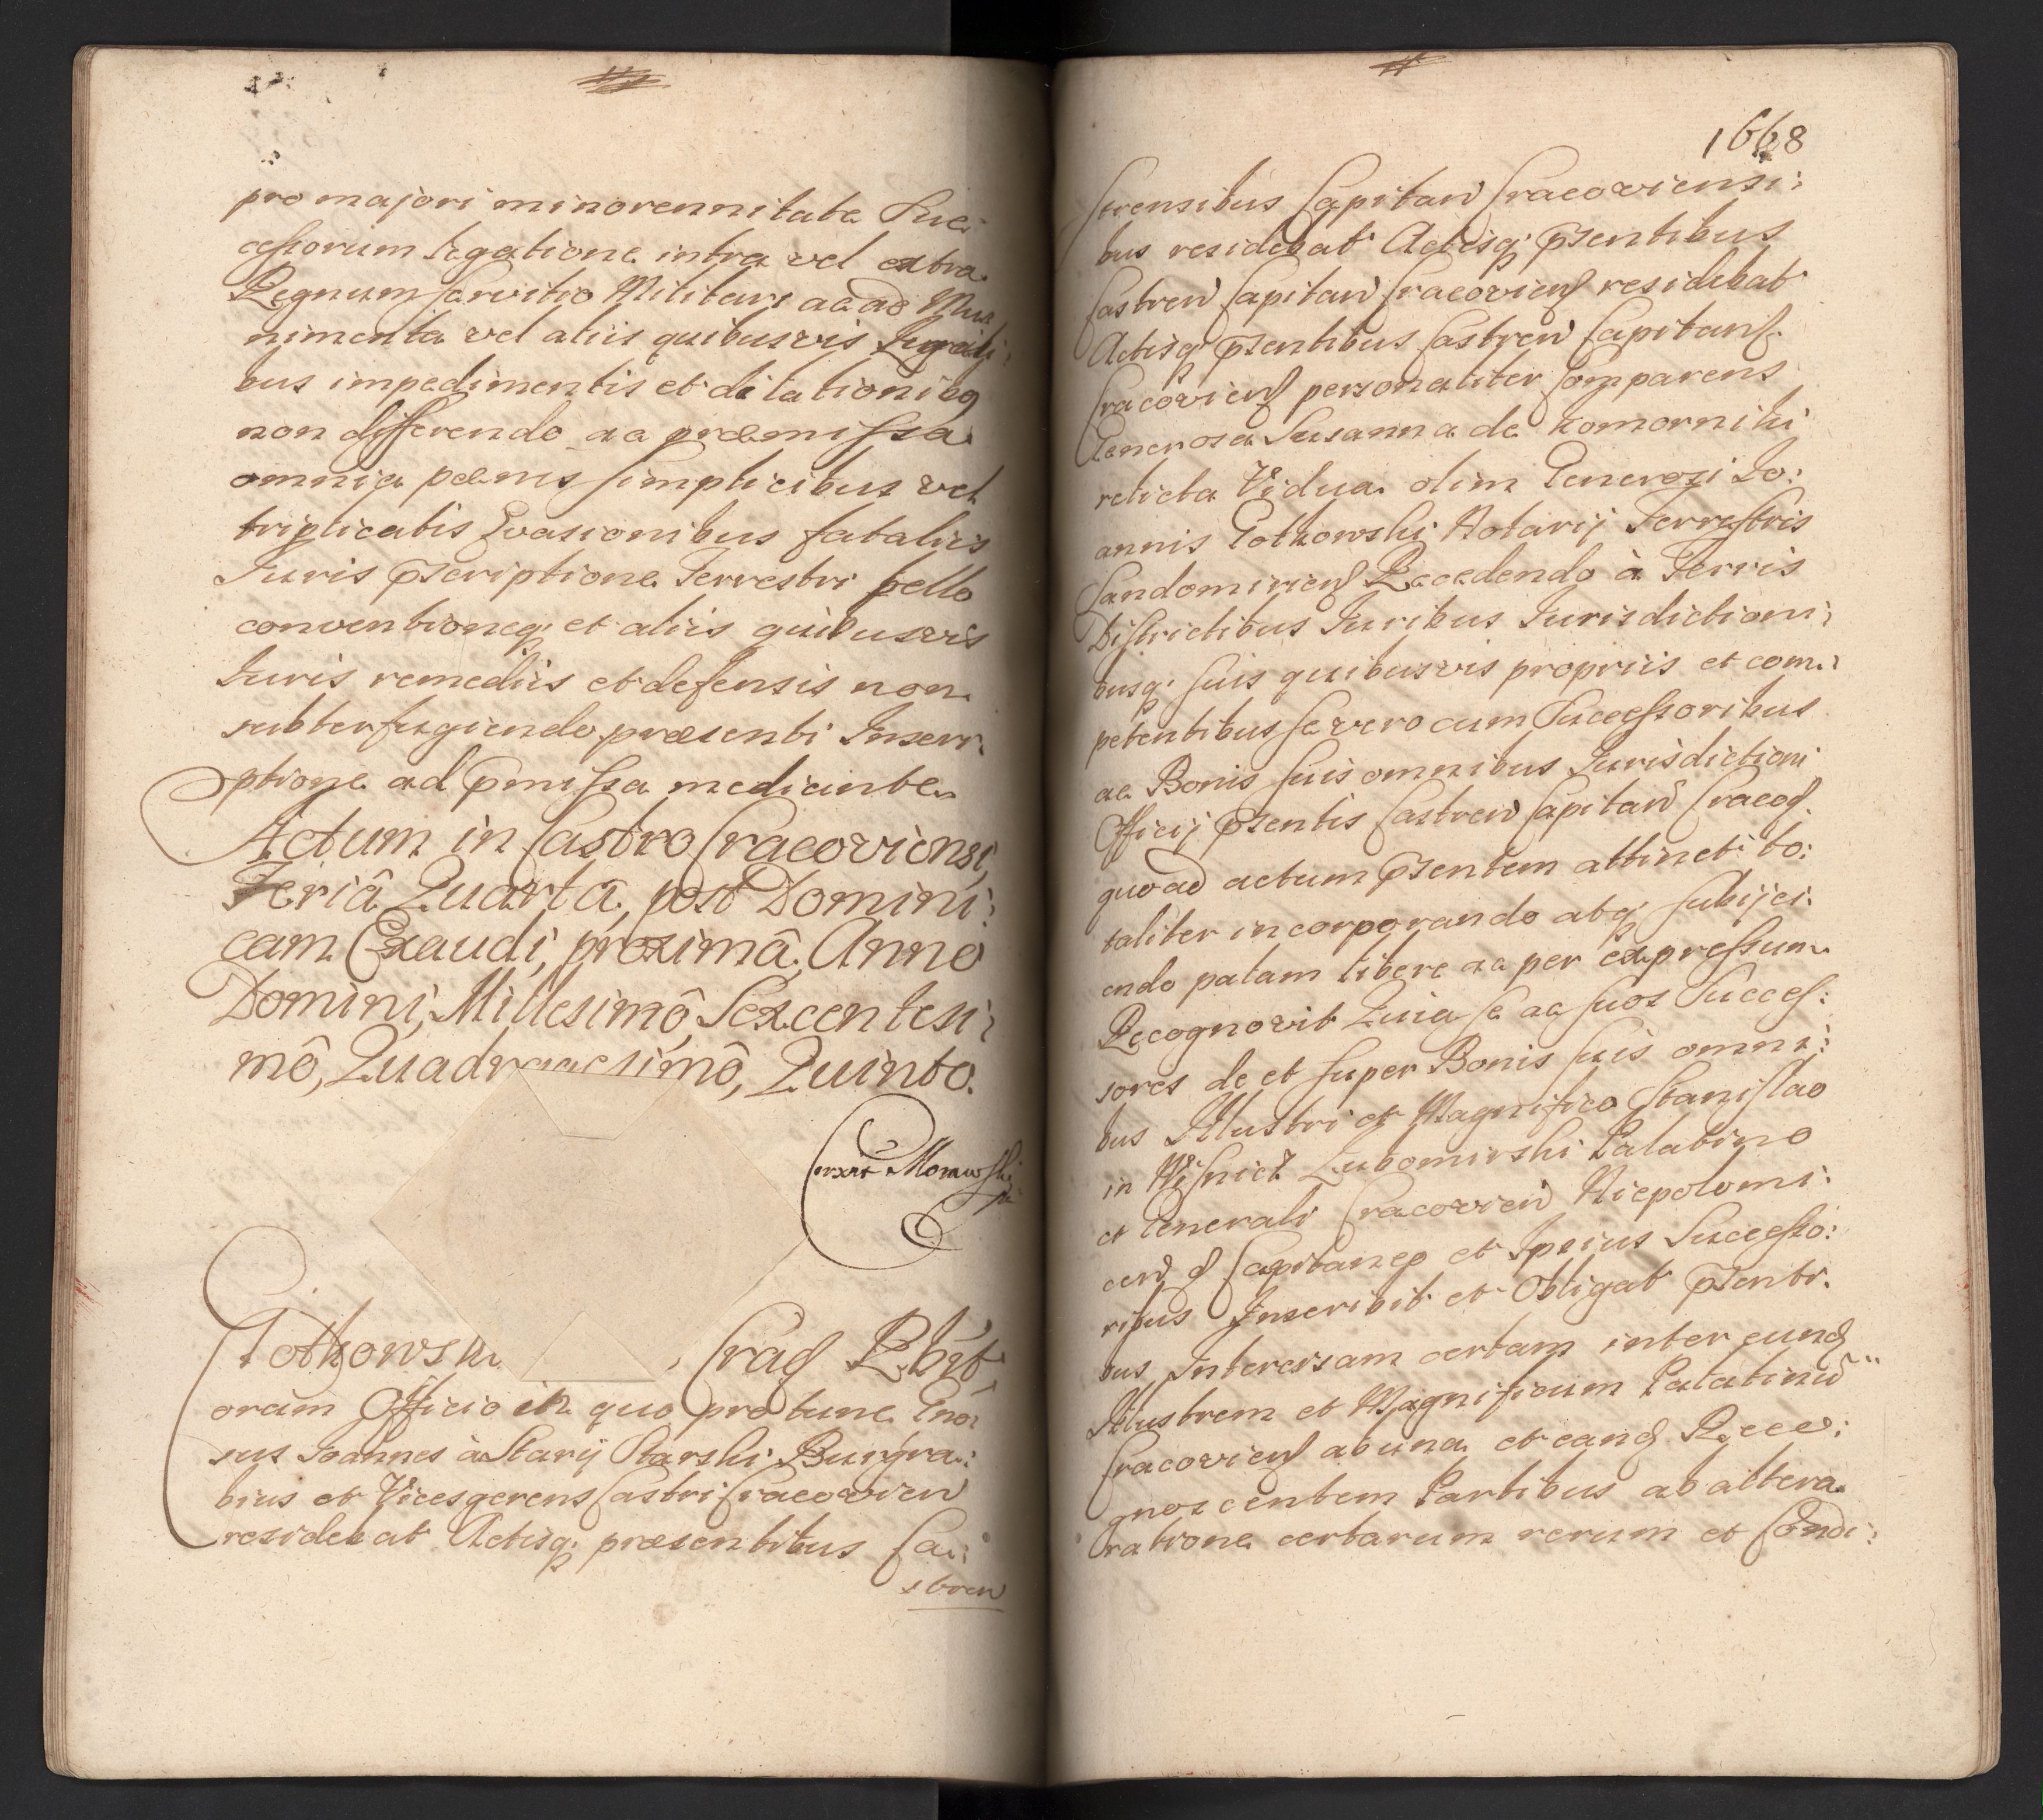 pro majori minorennitate Suc:
cessorum legatione intra vel extra
Regnum servitio Militari ac ad Mu
nimenta vel aliis quibusvis Legali:
bus impedimentis et dilationibq
non differendo ac præmissa
omnia pœnis simplicibus vel
triplicatis Evasionibus fataliis
Juris pscriptione Terrestri bello
conventioneq et aliis quibusvis
Juris remediis et defensis non
subterfugiendo præsenti Inscri:
ptione ad pmissa mediante
Actum in Castro Cracoviensi,
Feriâ Quarta, post Domini:
cam Exaudi, proximâ, Anno
Domini, Millesimô, Sexcentesi:
mô, Quadragesimô, Quinto.
Morawski
Gotkowski Crac
oram Officio in quo pro tunc Gnô
sus Joannes à Starÿ Starski Burgra:
bius et Vicesgerens Castri Cracovien
residebat Actisq præsentibus Ca:
stren
1668
strensibus Capitan Cracoviensi:
bus residebat Actisq psentibus
Castren Capitan Cracovien residebat
Actisq psentibus Castren Capitan
Cracovien personaliter Comparens
Generosa Susanna de Komorniki
relicta Vidua olim Generosi Jo:
annis Gotkowski Notarij Terrestris
Sandomirien Recedendo à Terris
Districtibus Juribus Jurisdictioni:
busq suis quibusvis propriis et com:
petentibus se vero cum Successoribus
ac Bonis suis omnibus Jurisdictioni
Officij psentis Castren Capitan Cracov
quo ad actum psentem attinet to:
taliter incorporando atq subijci:
endo palam libere ac per expressum
Recognovit Quia se ac suos Succes:
sores de et super Bonis suis omni:
bus Illustri et Magnifico Stanislao
in Wisnicz Lubomirski Palatino
et Generali Cracovien Niepolomi:
cen Capitaneo et Ipsius Successo:
ribus Inscribit et Obligat psenti:
bus Intercisam certam inter eund
Illustrem et Magnificum Palatinũ
Cracovien ab una et eand Reco:
gnoscentem Partibus ab altera
ratione certarum rerum et Condi: